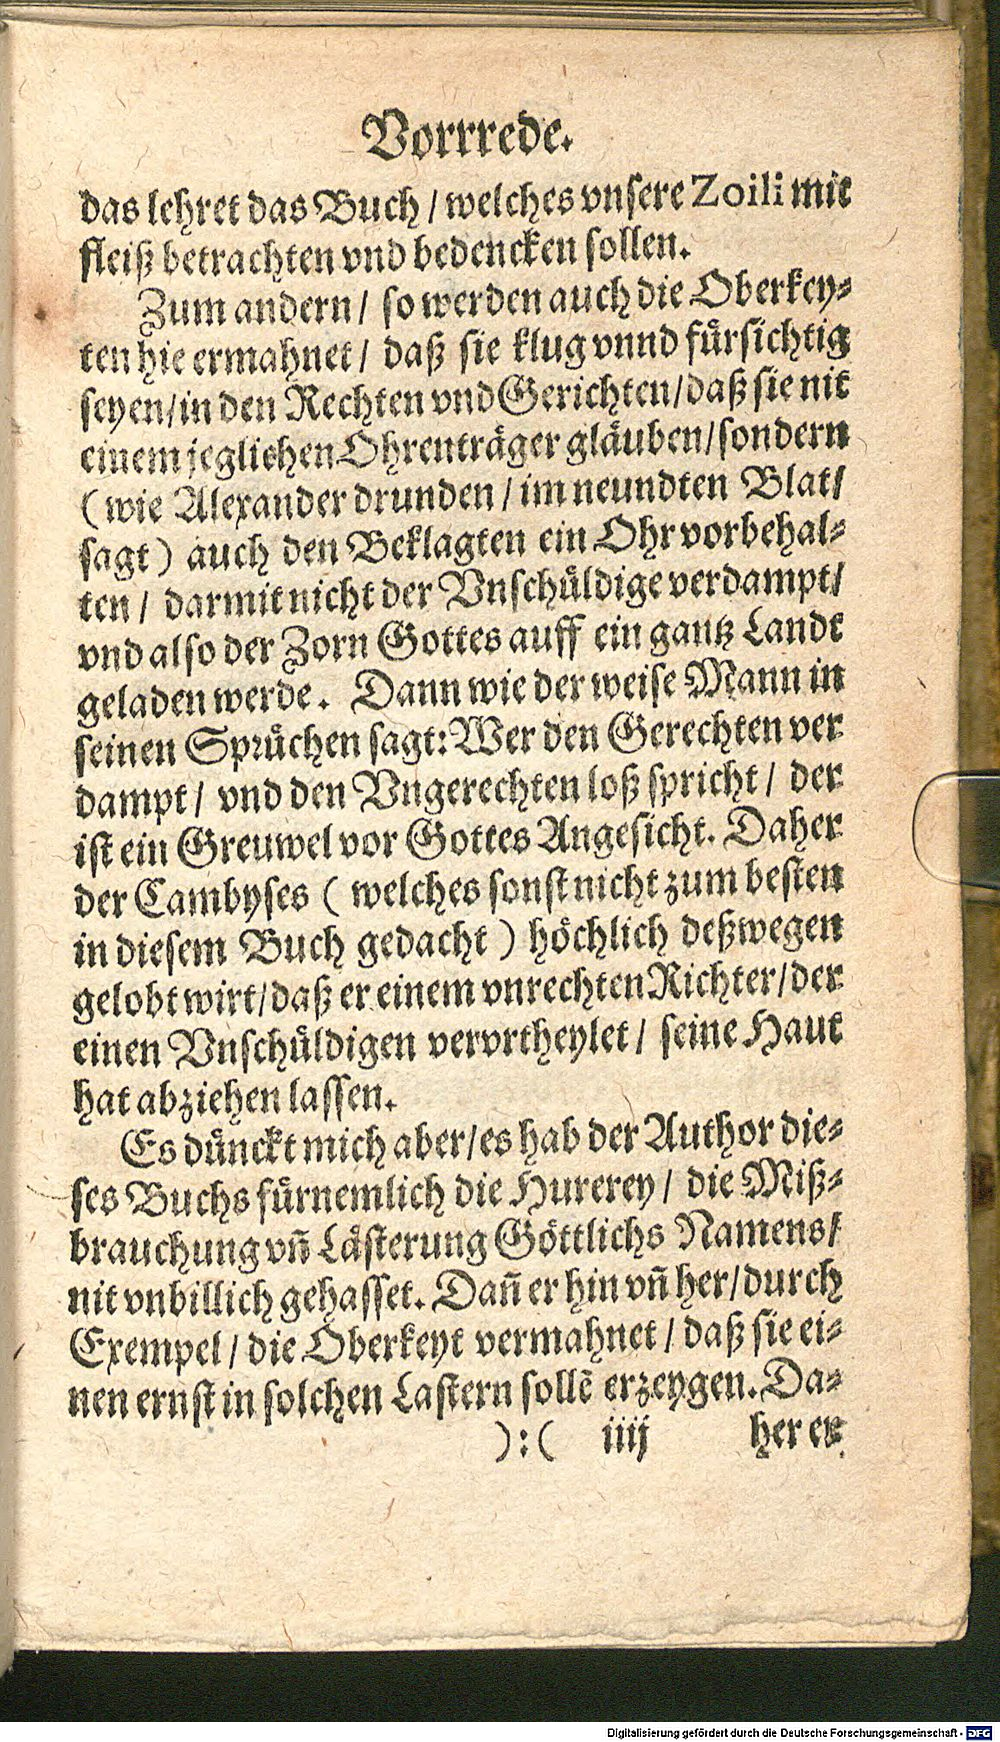 Vorrrede.
das lehret das Buch / welches vnsere Zoili mit
fleiß betrachten vnd bedencken sollen.
Zum andern / so werden auch die Oberkey-
ten hie ermahnet / daß sie klug vnnd fürsichtig
seyen / in den Rechten vnd Gerichten / daß sie nit
einem jeglichen Ohrenträger gläuben / sondern
( wie Alexander drunden / im neundten Blat /
sagt ) auch den Beklagten ein Ohr vorbehal-
ten / darmit nicht der Vnschüldige verdampt /
vnd also der Zorn Gottes auff ein gantz Landt
geladen werde. Dann wie der weise Mann in
seinen Sprüchen sagt: Wer den Gerechten ver
dampt / vnd den Vngerechten loß spricht / der
ist ein Greuwel vor Gottes Angesicht. Daher
der Cambyses ( welches sonst nicht zum besten
in diesem Buch gedacht ) höchlich deßwegen
gelobt wirt / daß er einem vnrechten Richter / der
einen Vnschüldigen vervrtheylet / seine Haut
hat abziehen lassen.
Es dünckt mich aber / es hab der Author die-
ses Buchs fürnemlich die Hurerey / die Miß-
brauchung vñ Lästerung Göttlichs Namens /
nit vnbillich gehasset. Dañ er hin vñ her / durch
Exempel / die Oberkeyt vermahnet / daß sie ei-
nen ernst in solchen Lastern sollẽ erzeygen. Da-
):( iiij her er
Digitalisierung gefördert durch die Deutsche Forschungsgemeinschaft - DFG